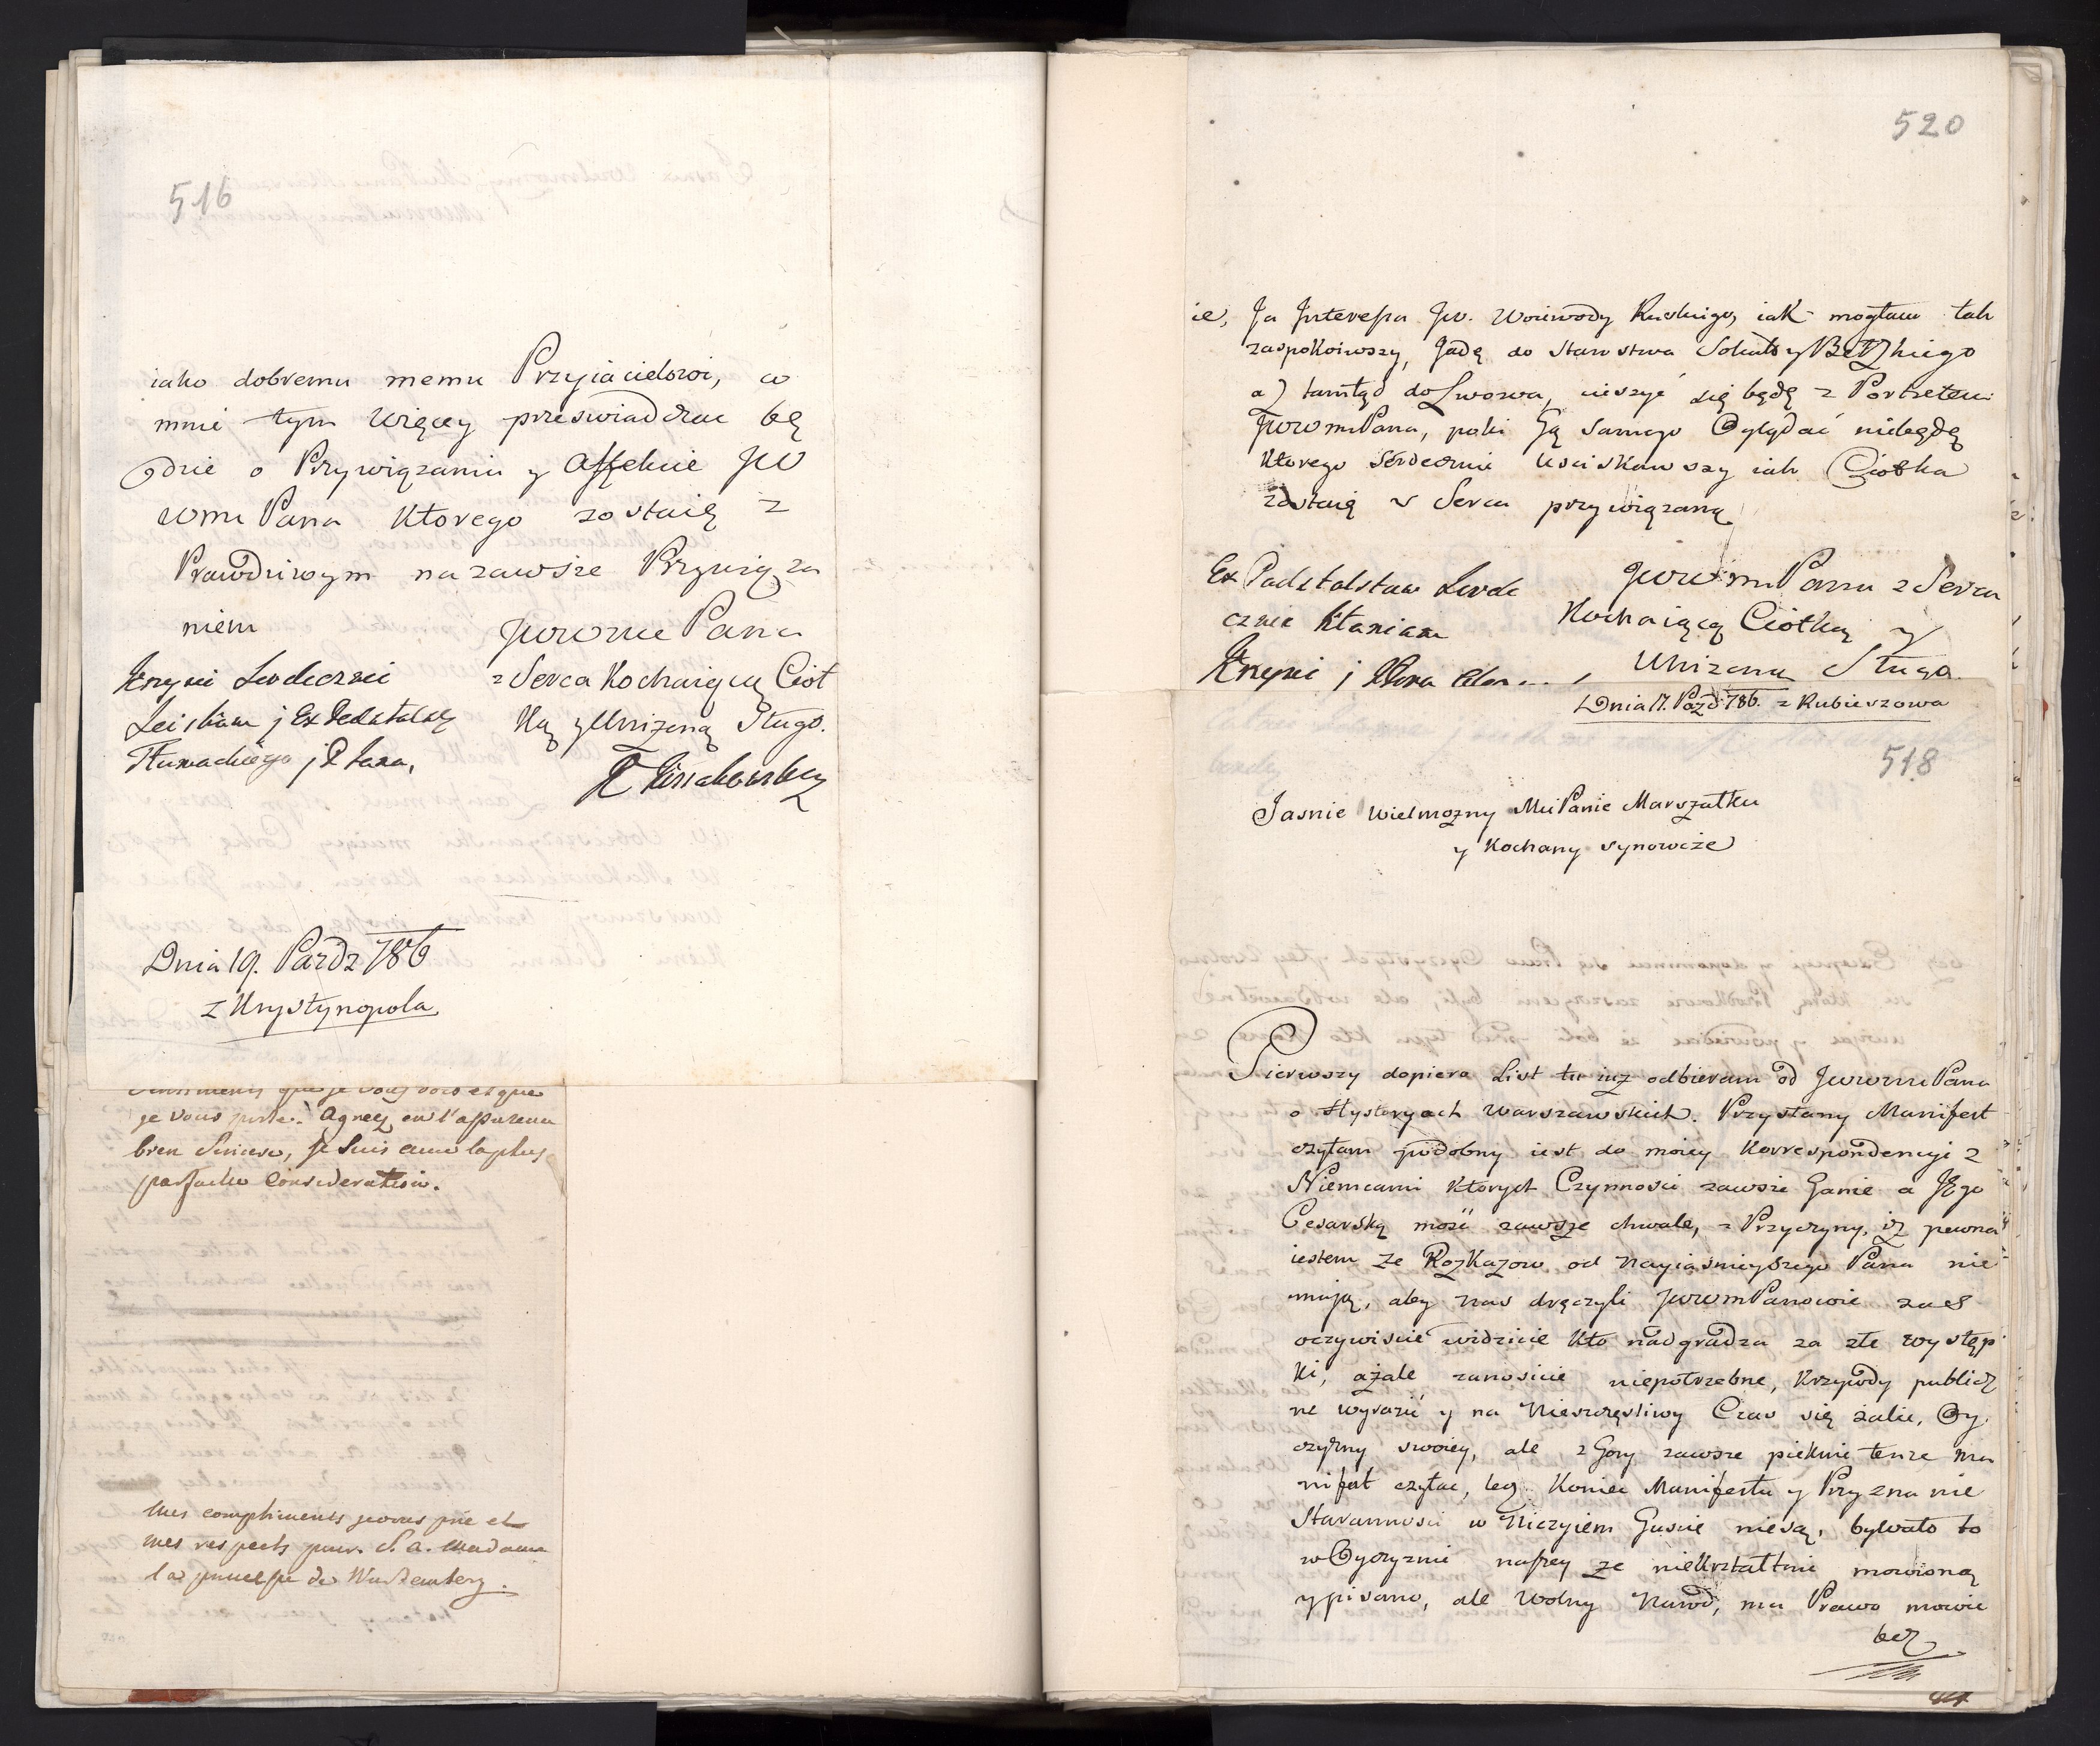 516
iako dobremu memu Przyiacielowi, co
mnie tym więcey przeswiadczac bę
dzie o Przywiązaniu y Affekcie JW
WM Pana ktorego zostaię z
Prawdziwym na zawsze Przywiąza
niem
JWWM Pana
z Serca Kochaiącą Ciot
ką y Unizoną Sługo.
Sciskam j Ex
Tłumackiego j
Dnia 19. Pazdz 786
z Krystynopola
je vous porte. Agreez en l'assurence
bien Sincere, je suis avec la plus
parfaite Consideration.
Mes compliments je vous prie et
mes respects pour S. A. Madame
la princesse de Wurtemberg.
520
ie, Ja Interessa JW. Woiewody Ruskiego, iak mogłam tak
zaspokoiwszy, Jadę do Starostwa
a tamtąd do Lwowa, cieszyć się będę z Portretem
JWWM Pana, poki Ję Samego Oglądać niebędę
ktorego Serdecznie Usciskawszy iak Ciotka
zostaię z Serca przywiązaną
JWWM Pana z Serca
Kochaiącą Ciotką y
Unizoną Sługo.
cznie kłaniam
Dnia 17. Pazd 786. z Rubieszowa
518
Jasnie Wielmozny Mci Panie Marszałku
y Kochany Synowcze
Pierwszy dopiero List tu iuz odbieram od JWWM Pana
o Hystoryach Warszawskich. Przysłany Manifest
czytam podobny iest do moiey Korrespondencyi z
Niemcami ktorych Czynnosci zawsze Ganie a JEgo
Cesarską mość zawsze chwale, z Przyczyny, iz pewna
iestem ze Rozkazow od Nayiasnieyszego Pana nie
maią, aby nas dręczyli JWWM Panowie zaś
oczywiscie widzicie kto nadgradza za złe występ
ki, a żale zanosicie niepotrzebne, krzywdy publicz
ne wyrazić y na Nieszczęsliwy Czas się żalic, Oy
czyzny swoiey, ale z Gory zawsze pieknie tenze Ma
nifest czytac, lecz Koniec Manifestu y Przyznanie
Staranności w Niczyiem Guscie niesą, bywało to
w Oyczyznie naszey ze niekształtnie mowioną
y pisano, ale Wolny Narod, ma Prawo mowic
bez